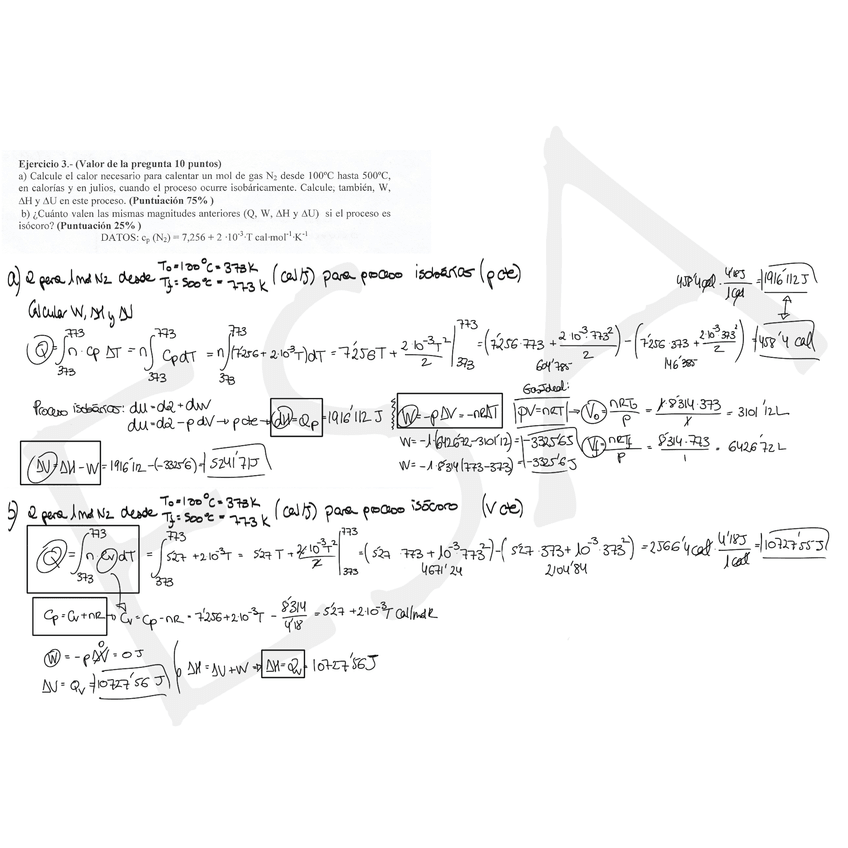 Ejercicio 3.- (Valor de la pregunta 10 puntos)
a) Calcule el calor necesario para calentar un mol de gas N₂ desde 100ºC hasta 500ºC,
en calorías y en julios, cuando el proceso ocurre isobáricamente. Calcule, también, W,
ΔH y ΔU en este proceso. (Puntuación 75% )
b) ¿Cuánto valen las mismas magnitudes anteriores (Q, W, ΔH y ΔU) si el proceso es
isócoro? (Puntuación 25% )
DATOS: cₚ (N₂) = 7,256 + 2 ·10⁻³·T cal·mol⁻¹·K⁻¹
a) Q para 1mol N2 desde T₀=100°C=373K Tf=500°C=773K (cal/J) para proceso isobárico (p cte)
Calcular W, ΔH y ΔU
458'4 cal · 4'18J/1cal = 1916'112 J
Q = ∫₃₇₃⁷⁷³ n · Cp ΔT = n ∫₃₇₃⁷⁷³ Cp dT = n ∫₃₇₃⁷⁷³ (7'256 + 2·10⁻³T) dT = 7'256T + 2·10⁻³T²/2 |₃₇₃⁷⁷³ = (7'256·773 + 2·10⁻³·773²/2) − (7'256·373 + 2·10⁻³·373²/2) = 458'4 cal
604'785
146'385
Proceso isobárico: dU = dQ + dW
dU = dQ − p dV → p cte → ΔH = Qp = 1916'112 J
W = −pΔV = −nRΔT
Gas Ideal:
pV = nRT → V₀ = nRT₀/p = 1·8'314·373/1 = 3101'12L
W = −1·(6426'72−3101'12) = −3325'6J
Vf = nRTf/p = 8'314·773/1 = 6426'72L
W = −1·8'314(773−373) = −3325'6J
ΔU = ΔH − W = 1916'12 − (−3325'6) = 5241'71J
b) Q para 1mol N2 desde T₀=100°C=373K Tf=500°C=773K (cal/J) para proceso isócoro (V cte)
Q = ∫₃₇₃⁷⁷³ n Cv dT = ∫₃₇₃⁷⁷³ 5'27 + 2·10⁻³T = 5'27T + 2·10⁻³T²/2 |₃₇₃⁷⁷³ = (5'27·773 + 10⁻³·773²) − (5'27·373 + 10⁻³·373²) = 2566'4 cal · 4'18J/1cal = 10727'55J
4671'24
2104'84
Cp = Cv + nR → Cv = Cp − nR = 7'256 + 2·10⁻³T − 8'314/4'18 = 5'27 + 2·10⁻³T cal/molK
W = −pΔV = 0J
ΔU = Qv = 10727'56 J
ΔH = ΔU + W → ΔH = Qv = 10727'56J
ESTA